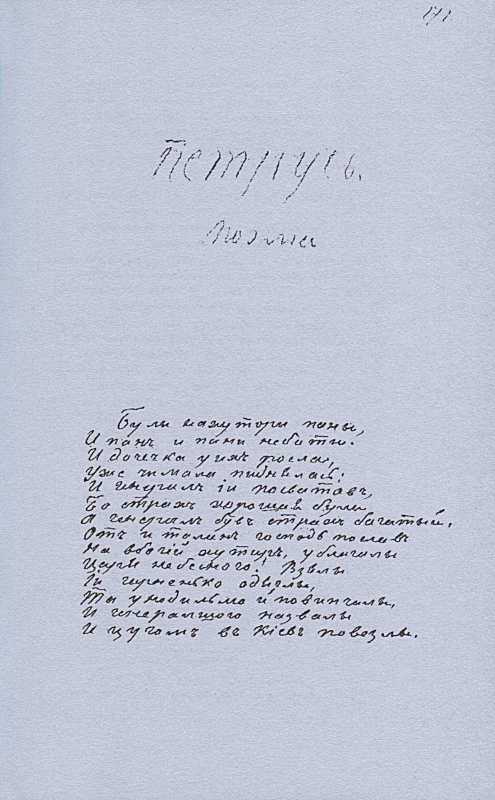 171
Петрусь.
Поэма
Були на хутори паны,
И панъ и пани небагаты.
И дочечка у ихъ росла,
Уже чимала пиднялась;
И генералъ іи посватавъ,
Бо страхъ хорошая була
А генералъ бувъ страхъ багатый.
Отъ и талан господь пославъ
На вбогій хутиръ, ублагалы
Царя небесного! Взялы
Ии гарненько одяглы,
Та у недильлю й повинчалы,
И генеральшою назвалы
И цугомъ въ Кіевъ повезлы.